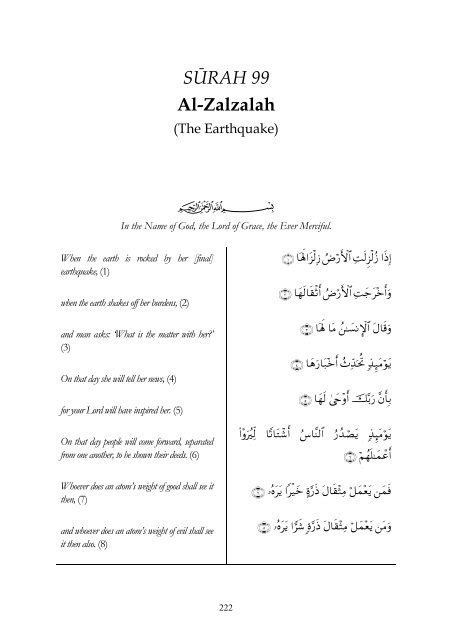 SŪRAH 99
Al-Zalzalah
(The Earthquake)
بِسْمِ ٱللَّهِ ٱلرَّحْمَٰنِ ٱلرَّحِيمِ
In the Name of God, the Lord of Grace, the Ever Merciful.
When the earth is rocked by her [final]
earthquake, (1)
when the earth shakes off her burdens, (2)
and man asks: ‘What is the matter with her?’
(3)
On that day she will tell her news, (4)
for your Lord will have inspired her. (5)
On that day people will come forward, separated
from one another, to be shown their deeds. (6)
Whoever does an atom’s weight of good shall see it
then, (7)
and whoever does an atom’s weight of evil shall see
it then also. (8)
إِذَا زُلْزِلَتِ ٱلْأَرْضُ زِلْزَالَهَا ۝١
وَأَخْرَجَتِ ٱلْأَرْضُ أَثْقَالَهَا ۝٢
وَقَالَ ٱلْإِنسَٰنُ مَا لَهَا ۝٣
يَوْمَئِذٍ تُحَدِّثُ أَخْبَارَهَا ۝٤
بِأَنَّ رَبَّكَ أَوْحَىٰ لَهَا ۝٥
يَوْمَئِذٍ يَصْدُرُ ٱلنَّاسُ أَشْتَاتًا لِّيُرَوْا۟
أَعْمَٰلَهُمْ ۝٦
فَمَن يَعْمَلْ مِثْقَالَ ذَرَّةٍ خَيْرًا يَرَهُۥ ۝٧
وَمَن يَعْمَلْ مِثْقَالَ ذَرَّةٍ شَرًّا يَرَهُۥ ۝٨
222